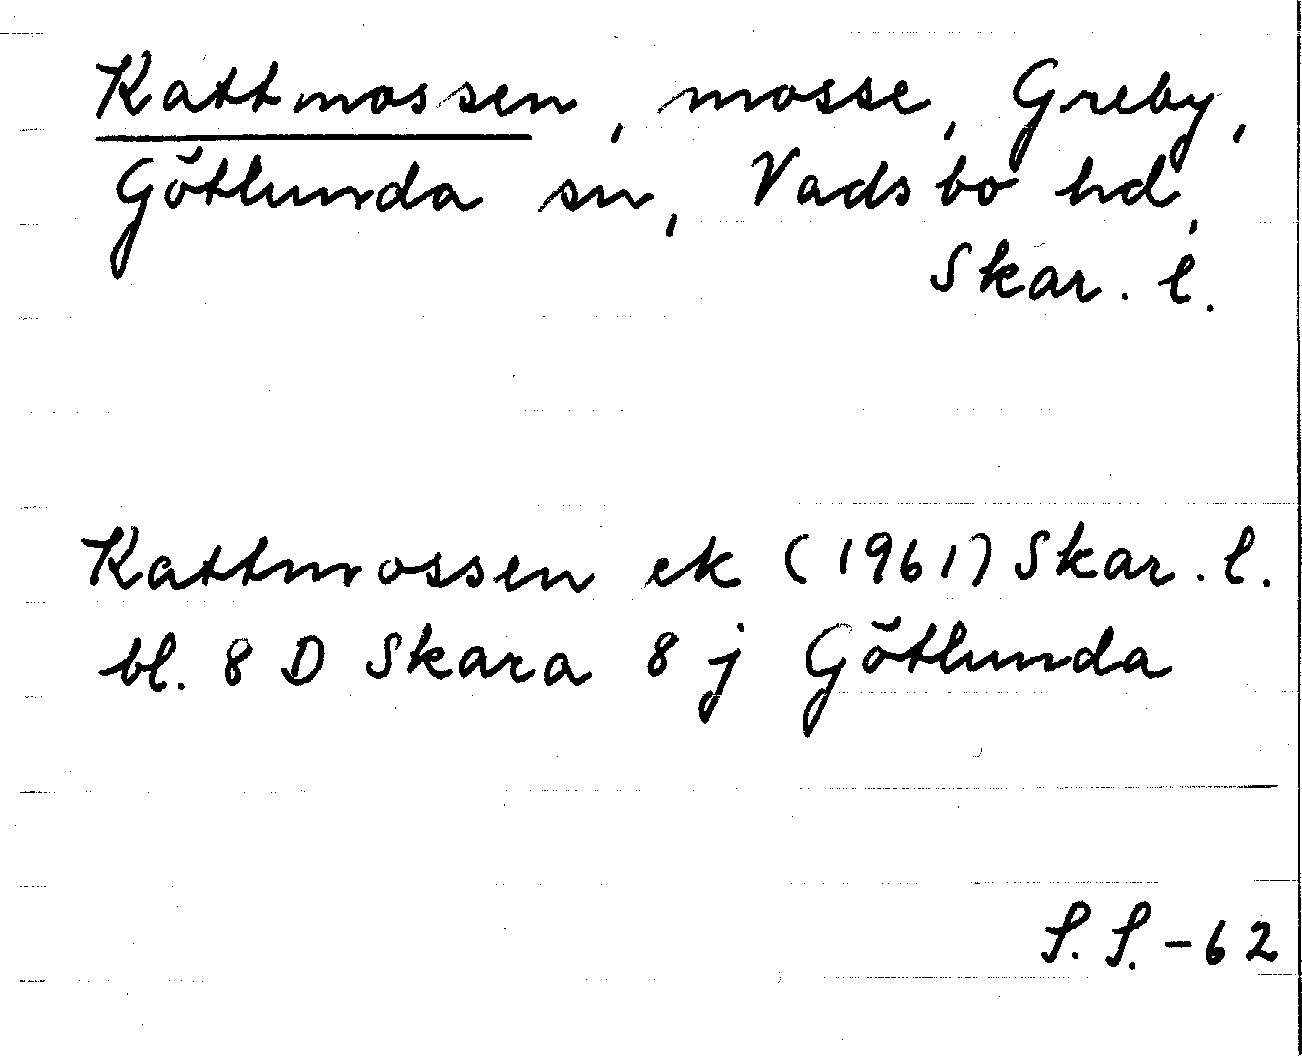 Kattmossen, mosse, Greby,
Götlunda sn, Vadsbo hd,
Skar. l.
Kattmossen ek (1961) Skar. l.
bl. 8 D Skara 8 j Götlunda
S. S. - 62